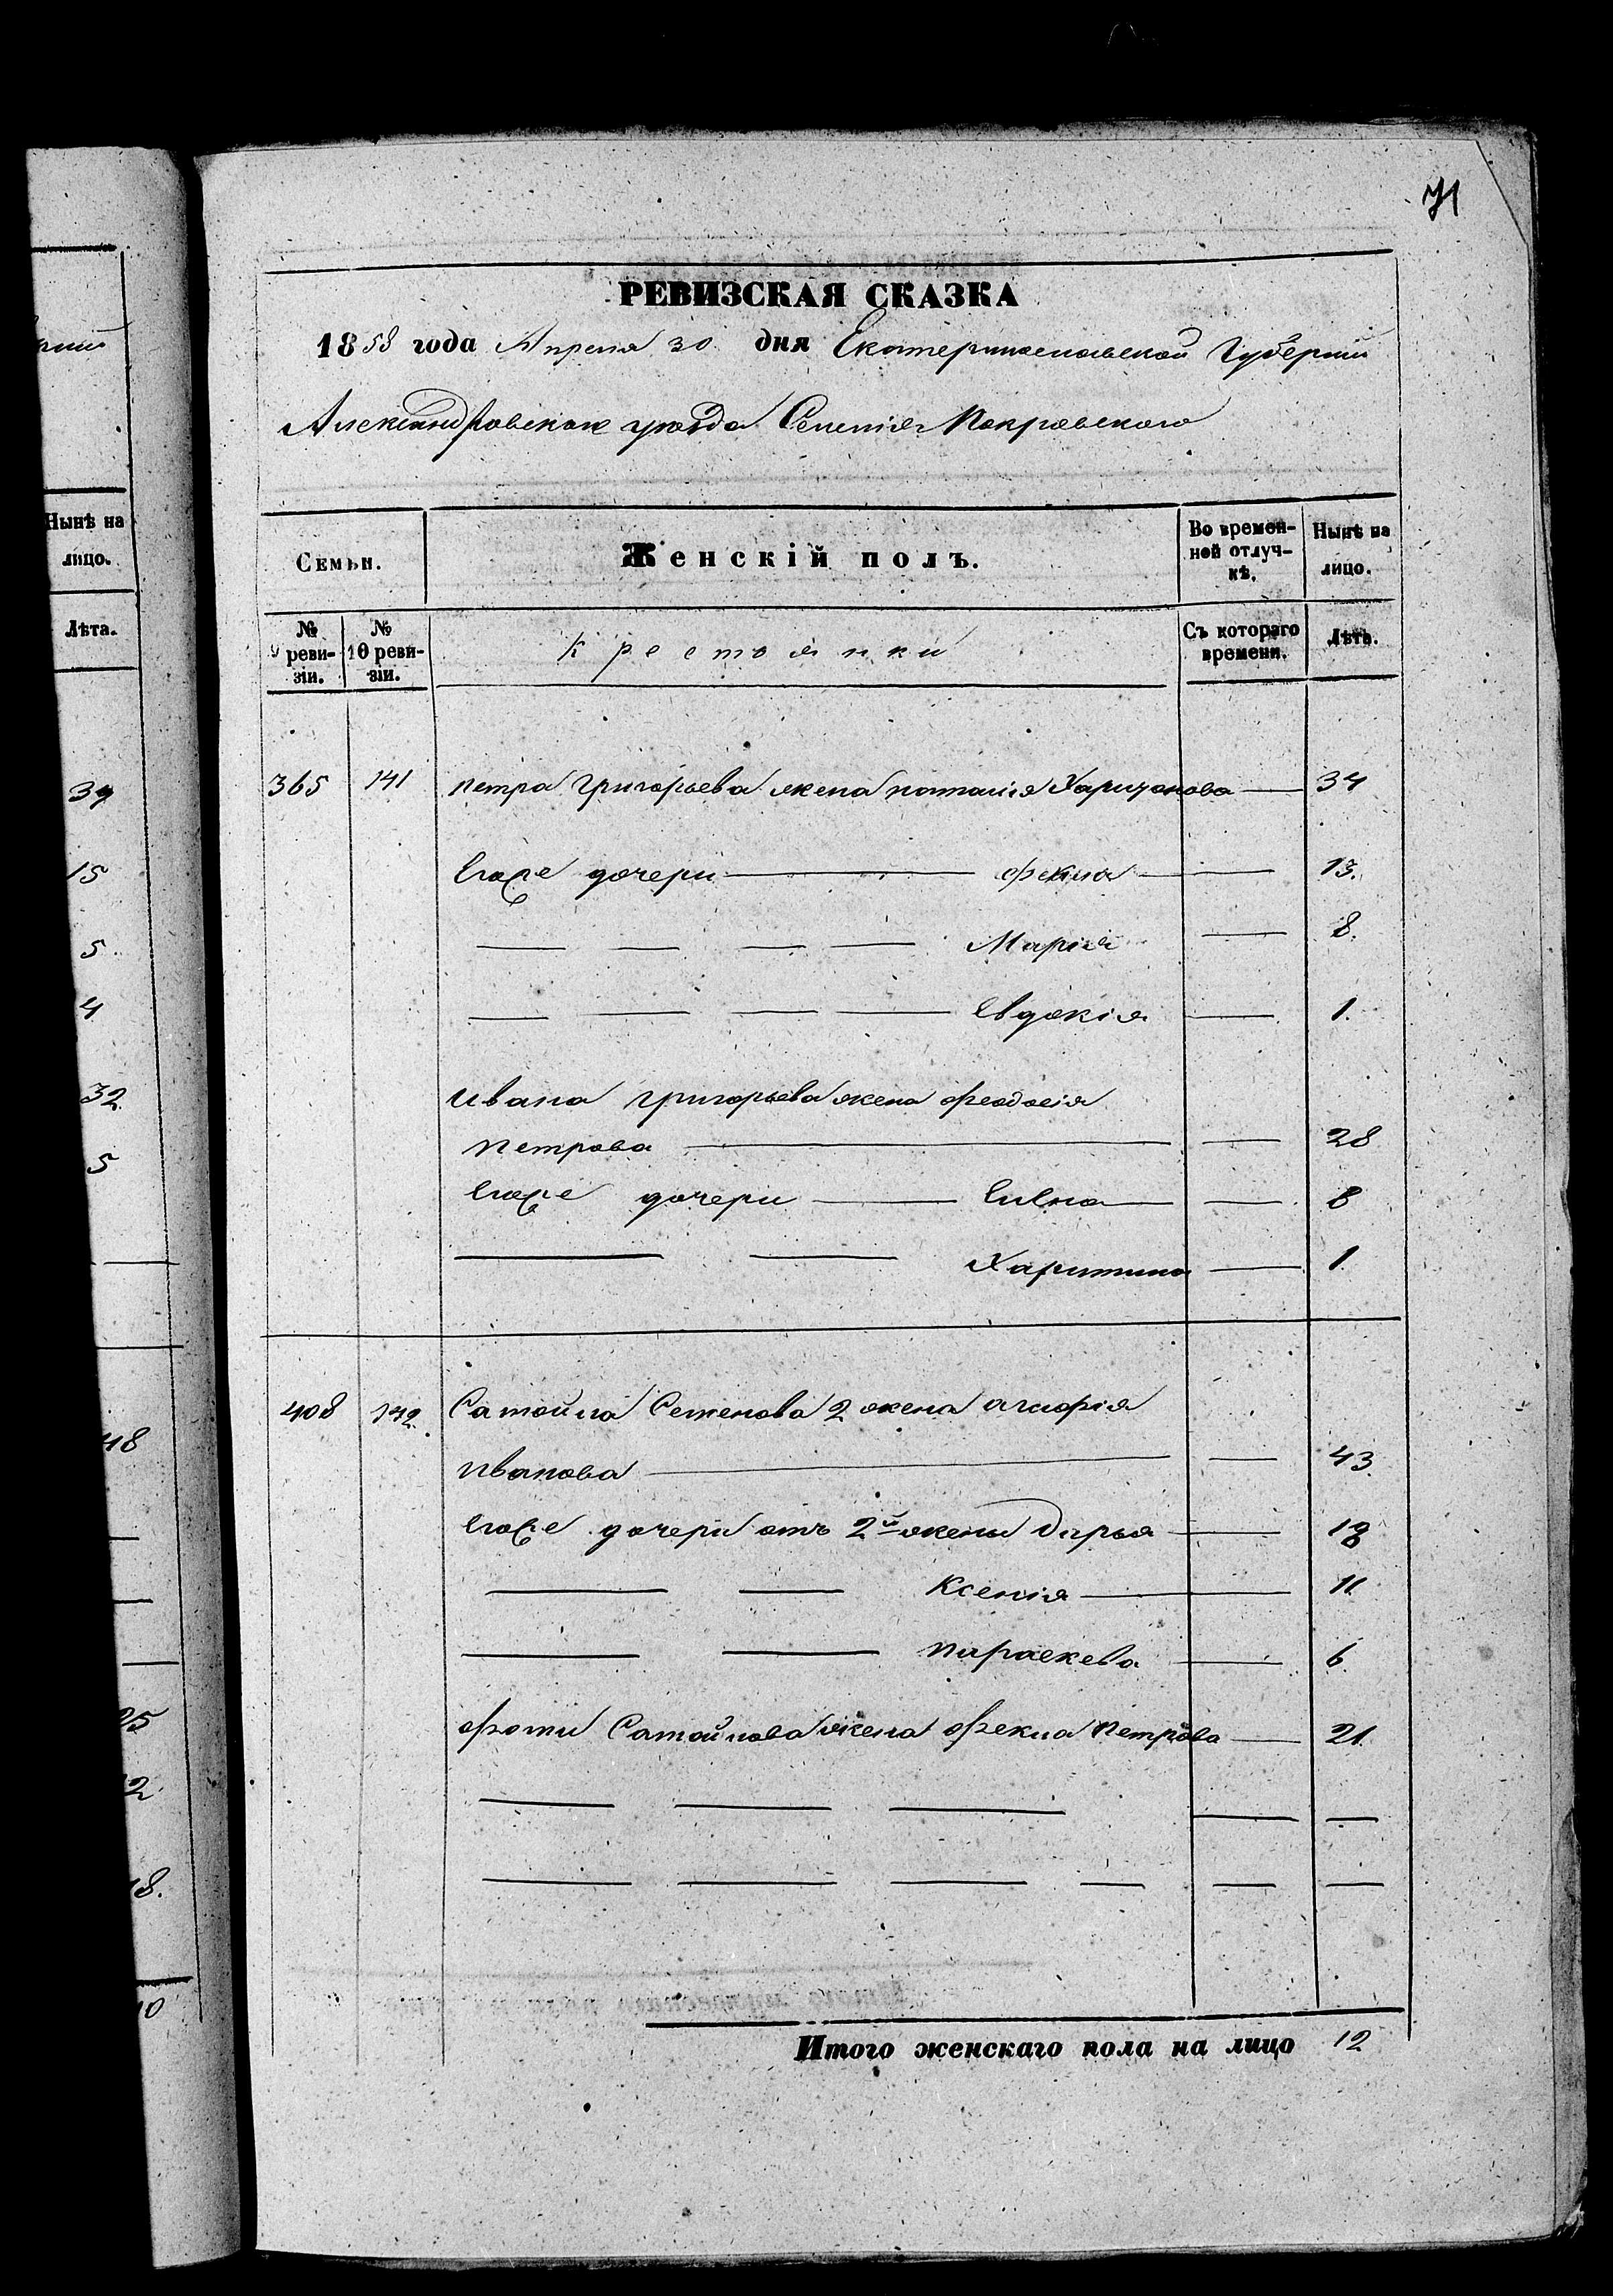 71
РЕВИЗСКАЯ СКАЗКА
1858 года Апреля 30 дня Екатеринославской Губернии
Александровскаго уезда Селенія Покровского
Семьи.
Женскій полъ.
Во времен-
ной отлуч-
кѣ.
Нынѣ на
лицо.
№
9 реви-
зіи.
№
10 реви-
зіи.
Крестьянки
Съ котораго
времени.
Лѣта.
365 141 Петра Григорьева жена Наталия Харитонова 34
Егоже дочери Фекла 13.
Марія 8.
Евдокія 1.
Ивана Григорьева жена Феодосія
Петрова 28
Егоже дочери Елена 8
Харитина 1
408 142. Самойла Семенова 2 жена Агафія
Иванова 43.
Егоже дочери отъ 2й жены Дарья 18
Ксенія 11
Параскева 6.
Фоти Самойлова жена Фекла Петрова 21.
Итого женскаго пола на лицо 12
Нынѣ на
лицо.
Лѣта.
15
5
4
32.
5
48